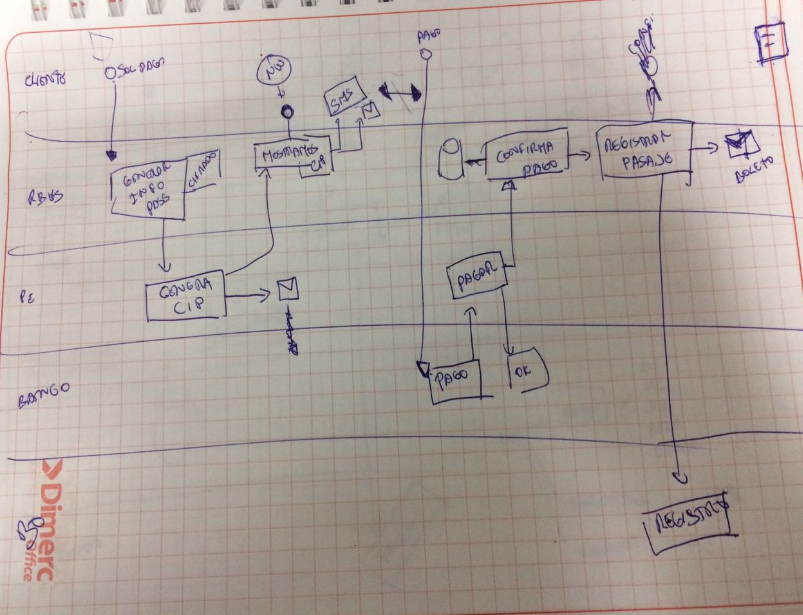 CLIENTE
SOL PAGO
NW
SMS
PAGO
RBUS
GENERAR
INFO
PASS
MOSTRAMOS
CIP
CONFIRMA
PAGO
REGISTRAR
PASAJE
BOLETO
PE
GENERA
CIP
PAGAR
BANCO
PAGO
OK
REGISTRO
Dimerc
office